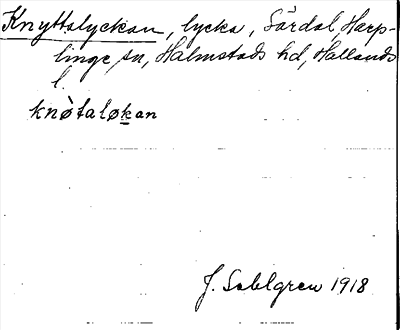 Knyttalyckan, lycka, Särdal, Harp-
linge sn, Halmstads hd, Hallands
l.
knòtaløkan
J. Sahlgren 1918